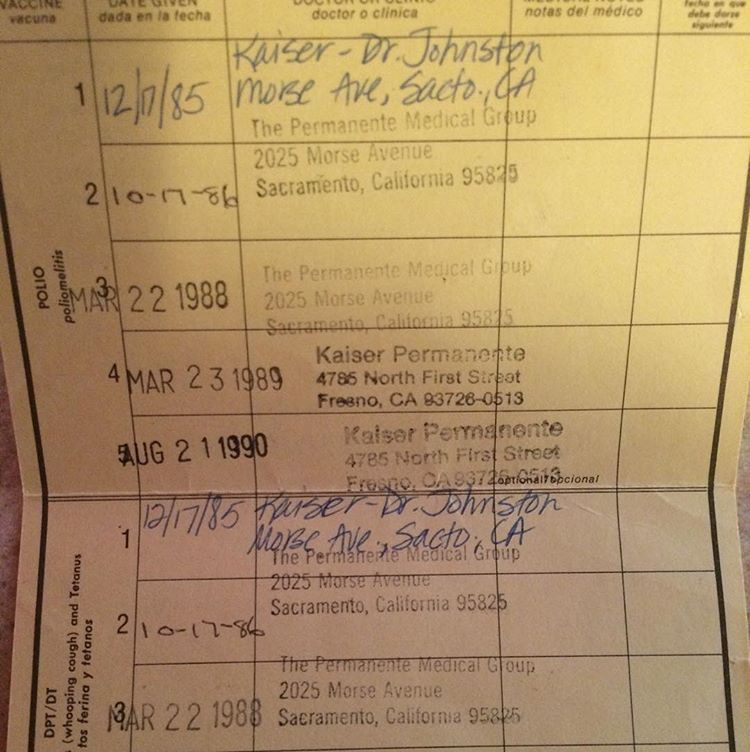 VACCINE DATE GIVEN DOCTOR OR CLINIC MEDICAL NOTES
vacuna dada en la fecha doctor o clínica notas del médico fecha en que debe darse siguiente
POLIO
poliomelitis
1 12/17/85 Kaiser-Dr. Johnston
Morse Ave, Sacto., CA
The Permanente Medical Group
2025 Morse Avenue
Sacramento, California 95825
2 10-17-86
3 MAR 22 1988 The Permanente Medical Group
2025 Morse Avenue
Sacramento, California 95825
4 MAR 23 1989 Kaiser Permanente
4785 North First Street
Fresno, CA 93726-0513
5 AUG 21 1990 Kaiser Permanente
4785 North First Street
Fresno, CA 93726-0513
optional/opcional
DPT/DT
(whooping cough) and Tetanus
tos ferina y tetanos
1 12/17/85 Kaiser-Dr. Johnston
Morse Ave., Sacto., CA
The Permanente Medical Group
2025 Morse Avenue
Sacramento, California 95825
2 10-17-86
3 MAR 22 1988 The Permanente Medical Group
2025 Morse Avenue
Sacramento, California 95825